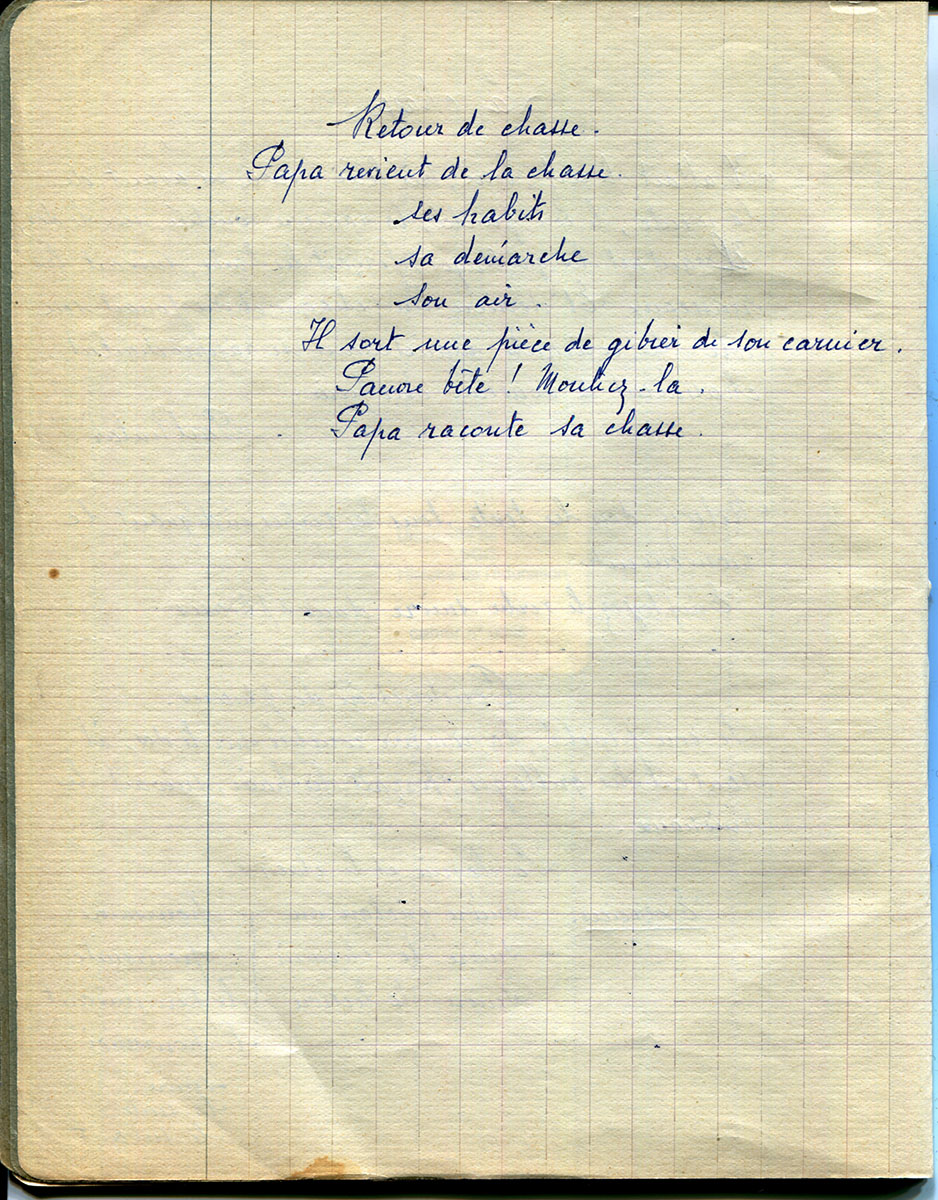 Retour de chasse.
Papa revient de la chasse.
ses habits
sa démarche
son air.
Il sort une pièce de gibier de son carnier.
Pauvre bête ! Montrez-la.
Papa raconte sa chasse.